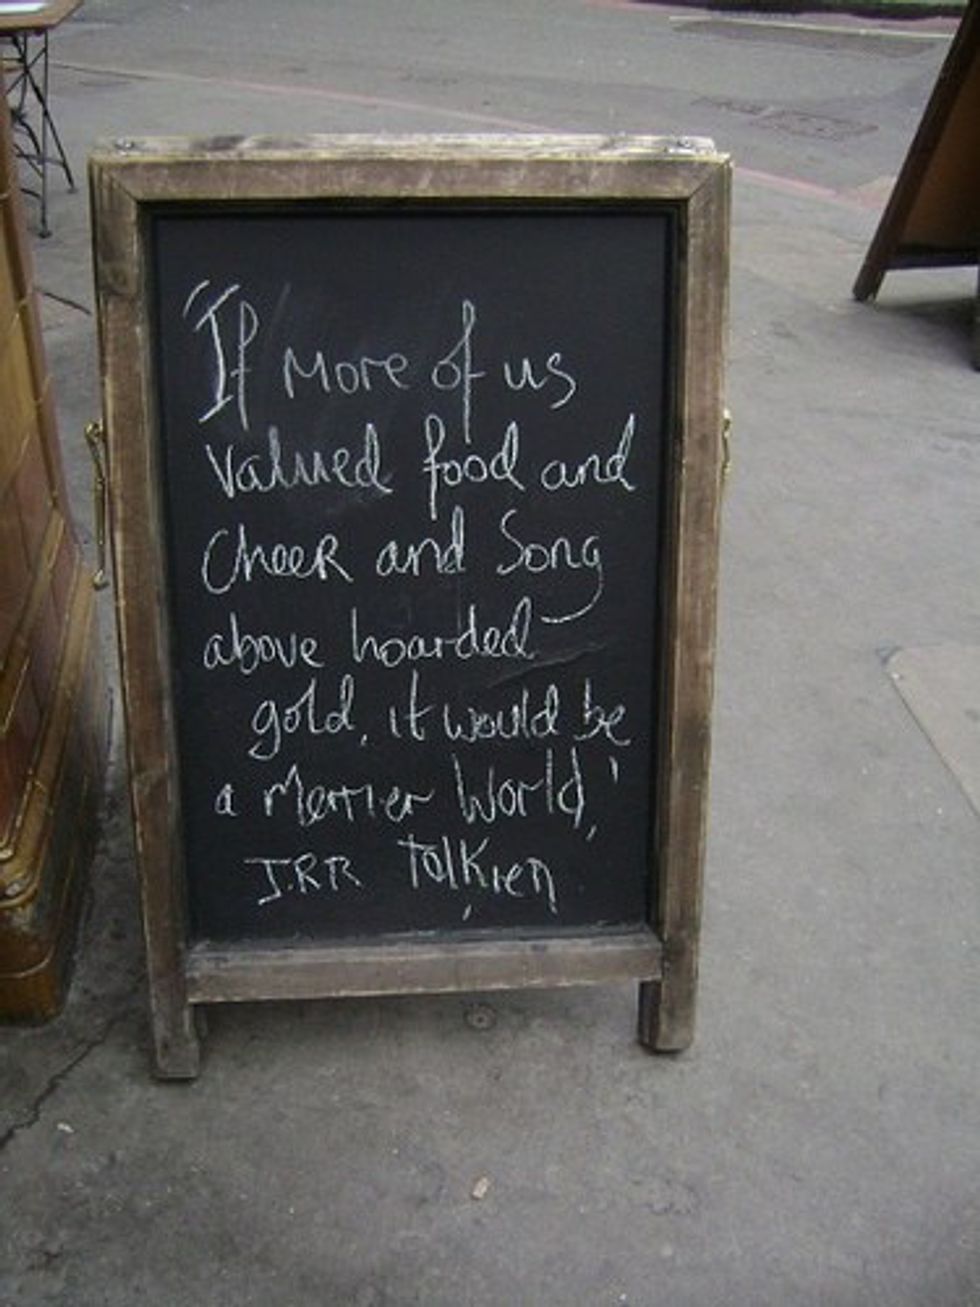 "If More of us
valued food and
Cheer and Song
above hoarded
gold, it would be
a Merrier World,'
J.R.R Tolkien,